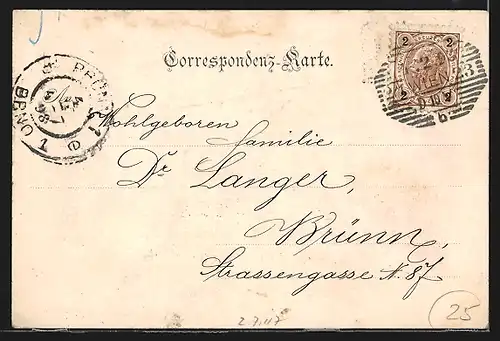 Correspondenz-Karte.
2 2
WIEN
BRÜNN
BRNO
Wohlgeboren
Familie
Dr Langer,
Brünn,
Strassengasse N. 87
25